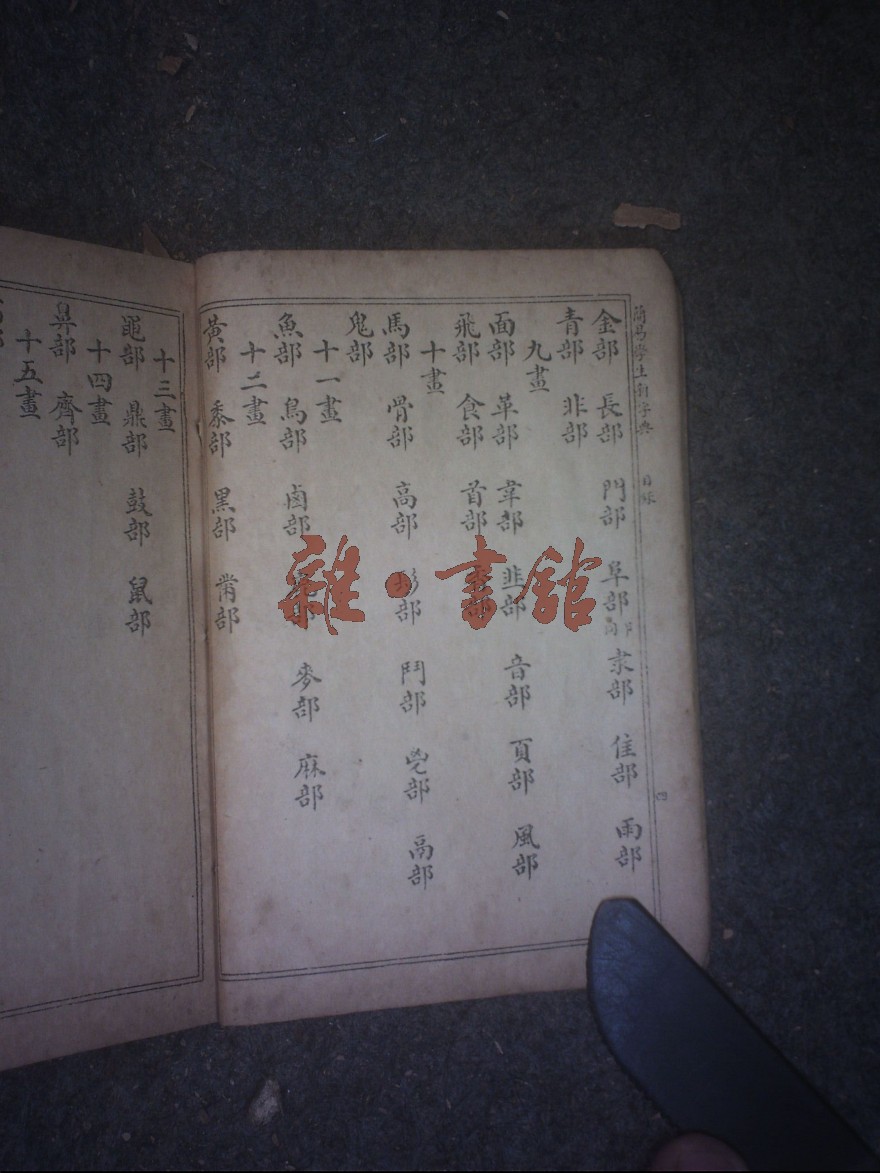 簡易學生新字典 目錄 四
金部 長部 門部 阜部 隶部 隹部 雨部
青部 非部
九畫
面部 革部 韋部 韭部 音部 頁部 風部
飛部 食部 首部
十畫
馬部 骨部 高部 髟部 鬥部 鬯部 鬲部
鬼部
十一畫
魚部 鳥部 鹵部 麥部 麻部
十二畫
黃部 黍部 黑部 黹部
十三畫
黽部 鼎部 鼓部 鼠部
十四畫
鼻部 齊部
十五畫
雜·書館